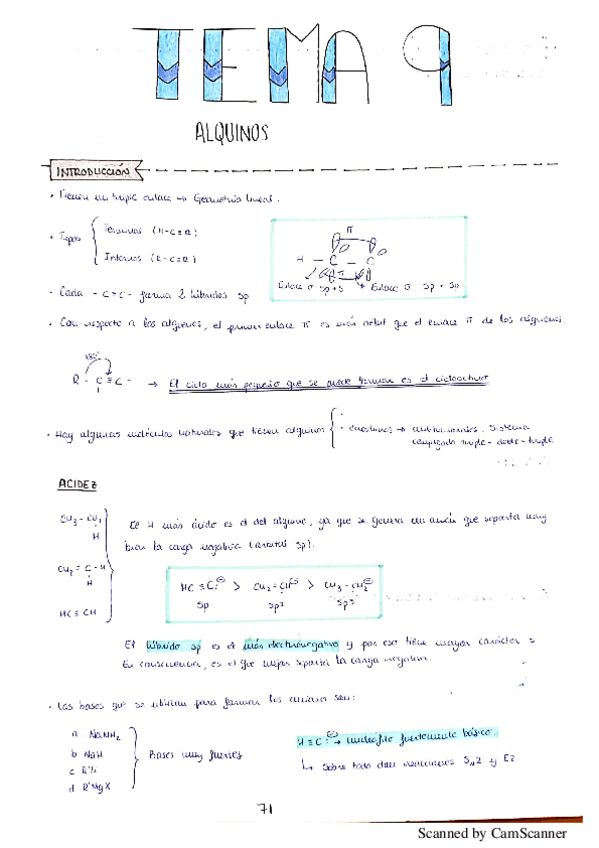 TEMA 9
ALQUINOS
INTRODUCCIÓN
• Tienen un triple enlace → Geometría lineal.
• Tipos
Terminales (H-C≡R)
Internos (R-C≡R)
π
H - C - C
π
Enlace σ sp+s
Enlace σ sp - sp
- Cada -C≡C- forma 2 híbridos sp
• Con respecto a los alquenos, el primer enlace π es más débil que el enlace π de los alquenos.
180°
R - C ≡ C - → El ciclo más pequeño que se puede formar es el ciclooctino
• Hay algunas moléculas naturales que tienen alquinos
• enediinos → antitumorales. Sistema
conjugado triple-doble-triple
ACIDEZ
CH3 - CH2
H
El H más ácido es el del alquino, ya que se genera un anión que soporta muy
bien la carga negativa (orbital sp).
CH2 = C - H
H
HC ≡ CH
HC ≡ C:⊖ > CH2 = CH⊖ > CH3 - CH2⊖
sp sp2 sp3
El híbrido sp es el más electronegativo y por eso tiene mayor carácter s
En consecuencia, es el que mejor soporta la carga negativa.
• Las bases que se utilizan para formar los aniones son:
a NaNH2
b NaH
c R'Li
d R'MgX
Bases muy fuertes
H ≡ C:⊖ → nucleófilo fuertemente básico.
↳ Sobre todo dan reacciones SN2 y E2
71
Scanned by CamScanner